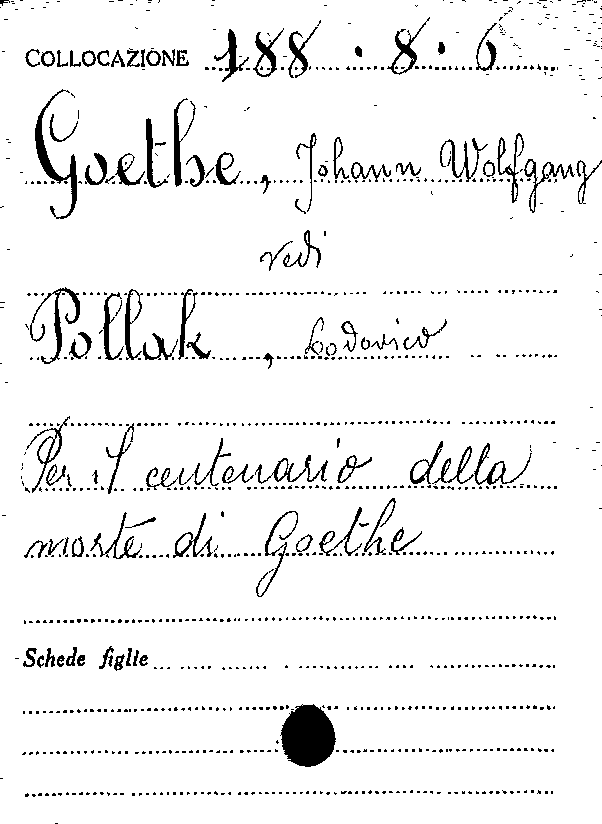 COLLOCAZIONE 188 . 8 . 6
Goethe, Johann Wolfgang
vedi
Pollak, Lodovico
Per il centenario della
morte di Goethe
Schede figlie